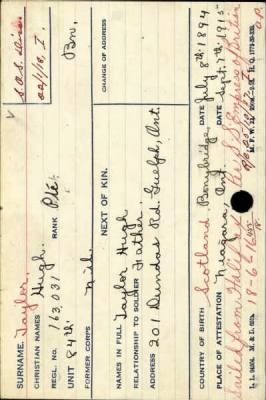 SURNAME. Taylor.
CHRISTIAN NAMES Hugh.
S.O.S. Died.
REGL. NO. 163,031 RANK Pte.
UNIT 84th Bn.
FORMER CORPS Nil.
CHANGE OF ADDRESS
NEXT OF KIN.
NAMES IN FULL Taylor Hugh
RELATIONSHIP TO SOLDIER Father.
ADDRESS 201 Dundas Rd. Guelph, Ont.
COUNTRY OF BIRTH Scotland Bonnybridge. DATE July 8th. 1894
PLACE OF ATTESTATION Niagara, Ont. DATE Sept. 7th. 1915
Sailed from Halifax per S.S. Empress of Britain